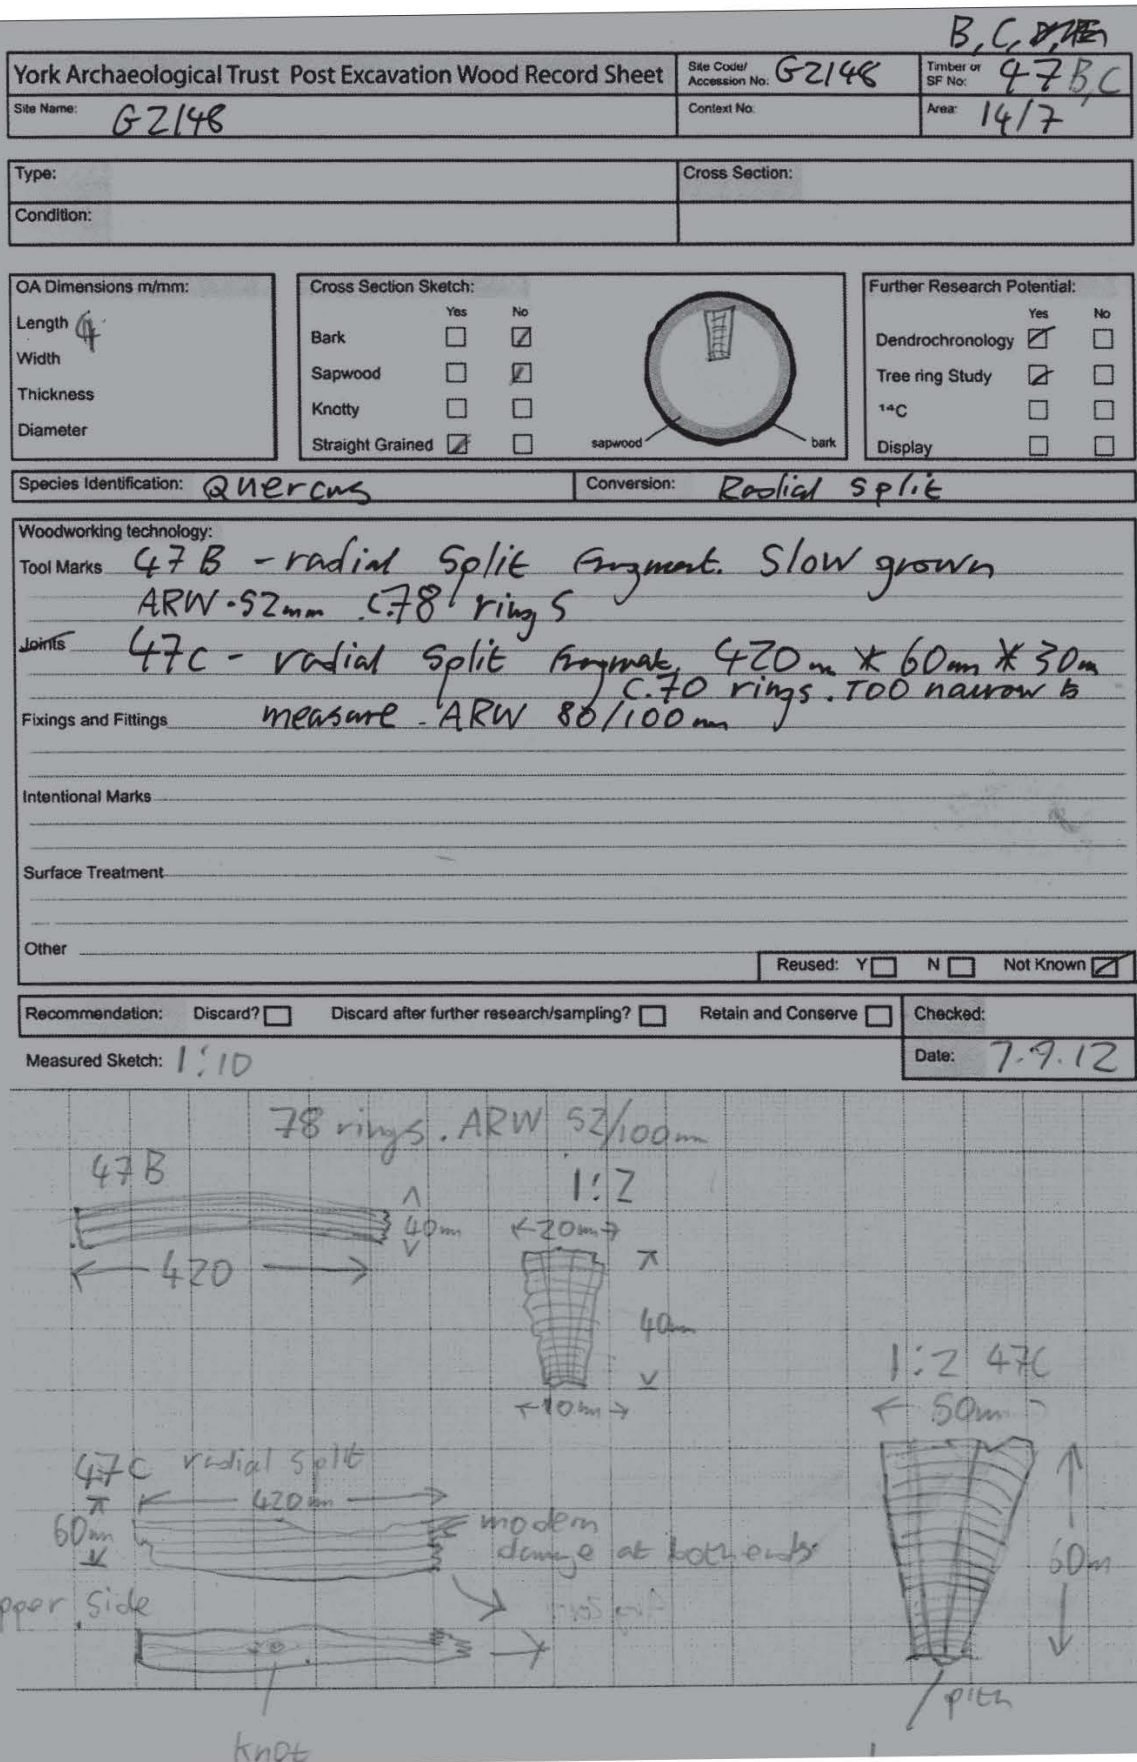 B, C,
York Archaeological Trust Post Excavation Wood Record Sheet
Site Code/ Accession No: G2148
Timber or SF No: 47B,C
Site Name: G2148
Context No:
Area: 14/7
Type:
Cross Section:
Condition:
OA Dimensions m/mm:
Length
Width
Thickness
Diameter
Cross Section Sketch:
Yes No
Bark
Sapwood
Knotty
Straight Grained
sapwood
bark
Further Research Potential:
Yes No
Dendrochronology
Tree ring Study
14C
Display
Species Identification: Quercus
Conversion: Radial split
Woodworking technology:
Tool Marks 47B - radial split fragment. Slow grown
ARW .52mm c.78 rings
Joints 47C - radial split fragment, 420m * 60mm * 30m
c.70 rings. Too narrow to
Fixings and Fittings measure - ARW 80/100mm
Intentional Marks
Surface Treatment
Other
Reused: Y N Not Known
Recommendation: Discard? Discard after further research/sampling? Retain and Conserve
Checked:
Measured Sketch: 1:10
Date: 7.9.12
78 rings. ARW 52/100mm
47B
1:2
40mm
20mm
420
40mm
10mm
1:2 47C
50mm
47C radial split
420mm
60mm
modern
damage at both ends
60m
pper side
pith
knot